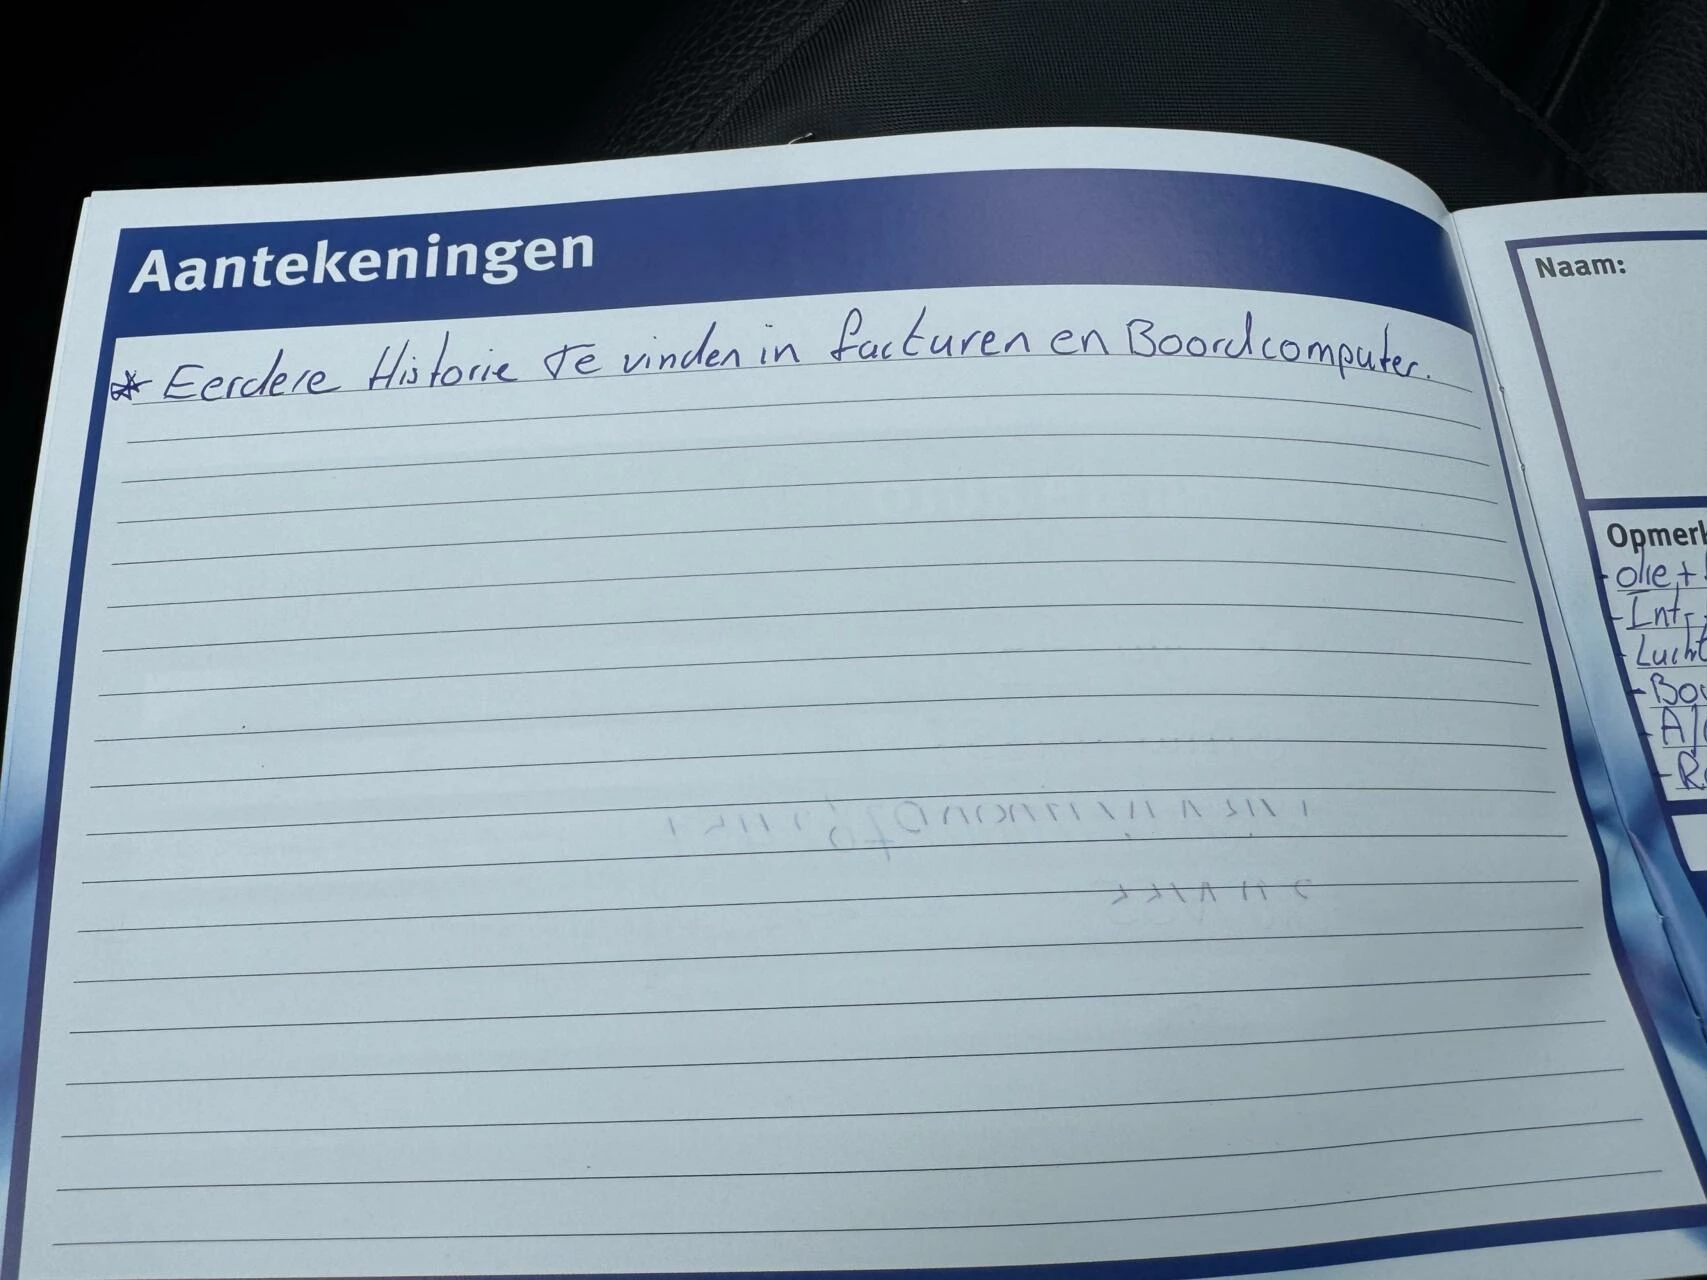 Aantekeningen
* Eerdere Historie te vinden in facturen en Boordcomputer.
Naam:
- olie +
- Int.
- Lucht